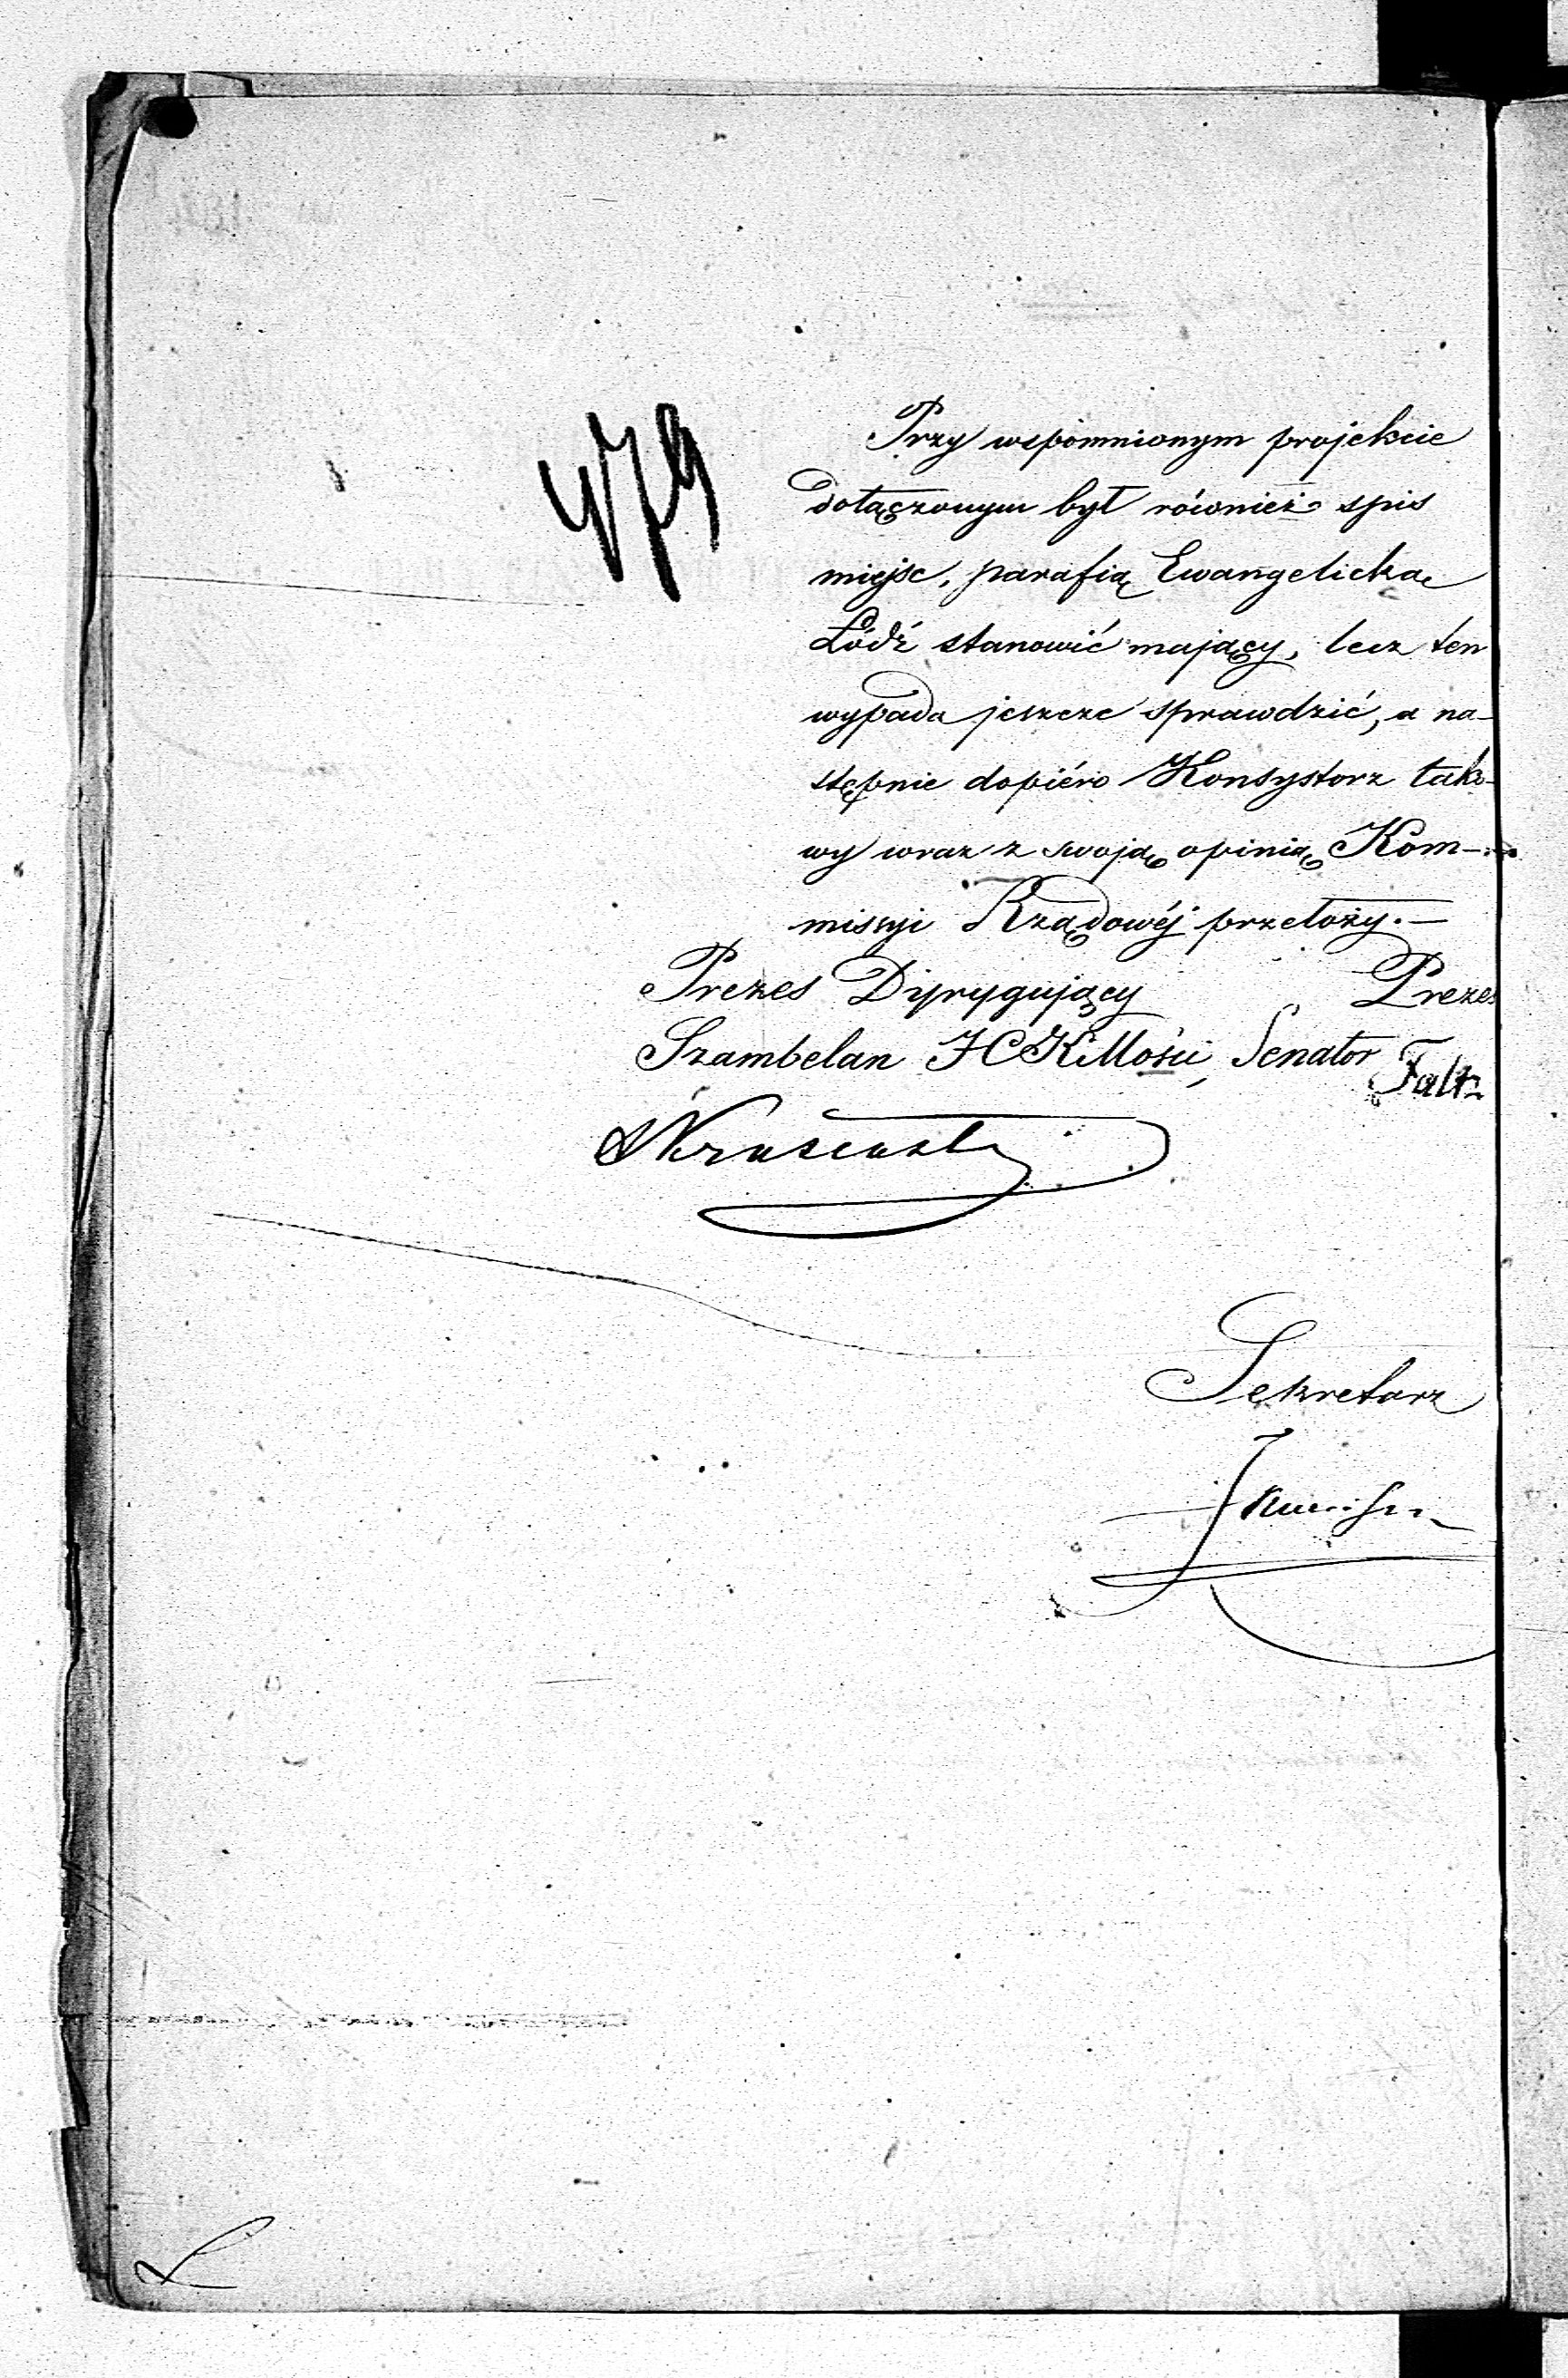 479
Przy wspomnionym projekcie
dołączonym był również spis
miejsc, parafią Ewangelicką
Łódź stanowić mający, lecz ten
wypada jeszcze sprawdzić, a na-
stępnie dopiéro Konsystorz tako-
wy wraz z swoją opinią Kom-
missyi Rządowéj przełoży.—
Prezes Dyrygujący Prezes
Szambelan JCKMości, Senator
Sekretarz
L